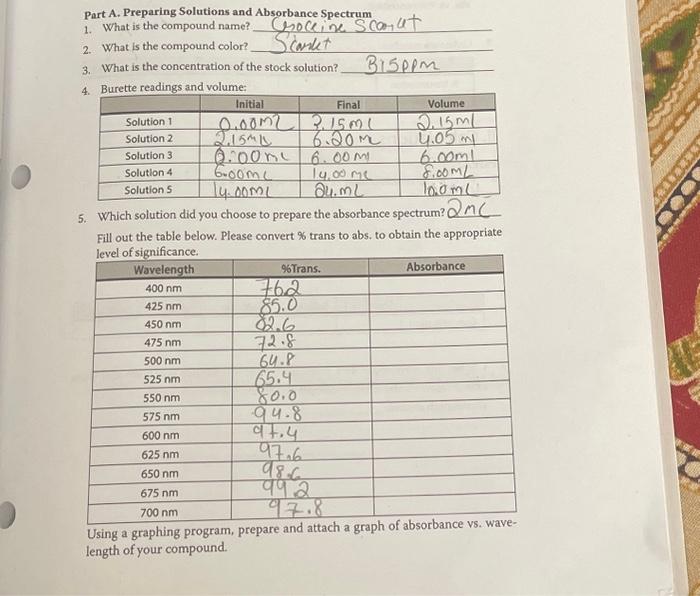 Part A. Preparing Solutions and Absorbance Spectrum
1. What is the compound name? Croceine Scarlet
2. What is the compound color? Scarlet
3. What is the concentration of the stock solution? 315ppm
4. Burette readings and volume:
Initial Final Volume
Solution 1 0.00ml 2.15ml 2.15ml
Solution 2 2.15ml 6.20m 4.05 ml
Solution 3 0.00ml 6.00ml 6.00ml
Solution 4 6.00ml 14.00ml 8.00mL
Solution 5 14.00ml 24.mL 10.0ml
5. Which solution did you choose to prepare the absorbance spectrum? 2mL
Fill out the table below. Please convert % trans to abs. to obtain the appropriate
level of significance.
Wavelength %Trans. Absorbance
400 nm 76.2
425 nm 85.0
450 nm 82.6
475 nm 72.8
500 nm 64.8
525 nm 65.4
550 nm 80.0
575 nm 94.8
600 nm 97.4
625 nm 97.6
650 nm 98.6
675 nm 99.2
700 nm 97.8
Using a graphing program, prepare and attach a graph of absorbance vs. wave-
length of your compound.